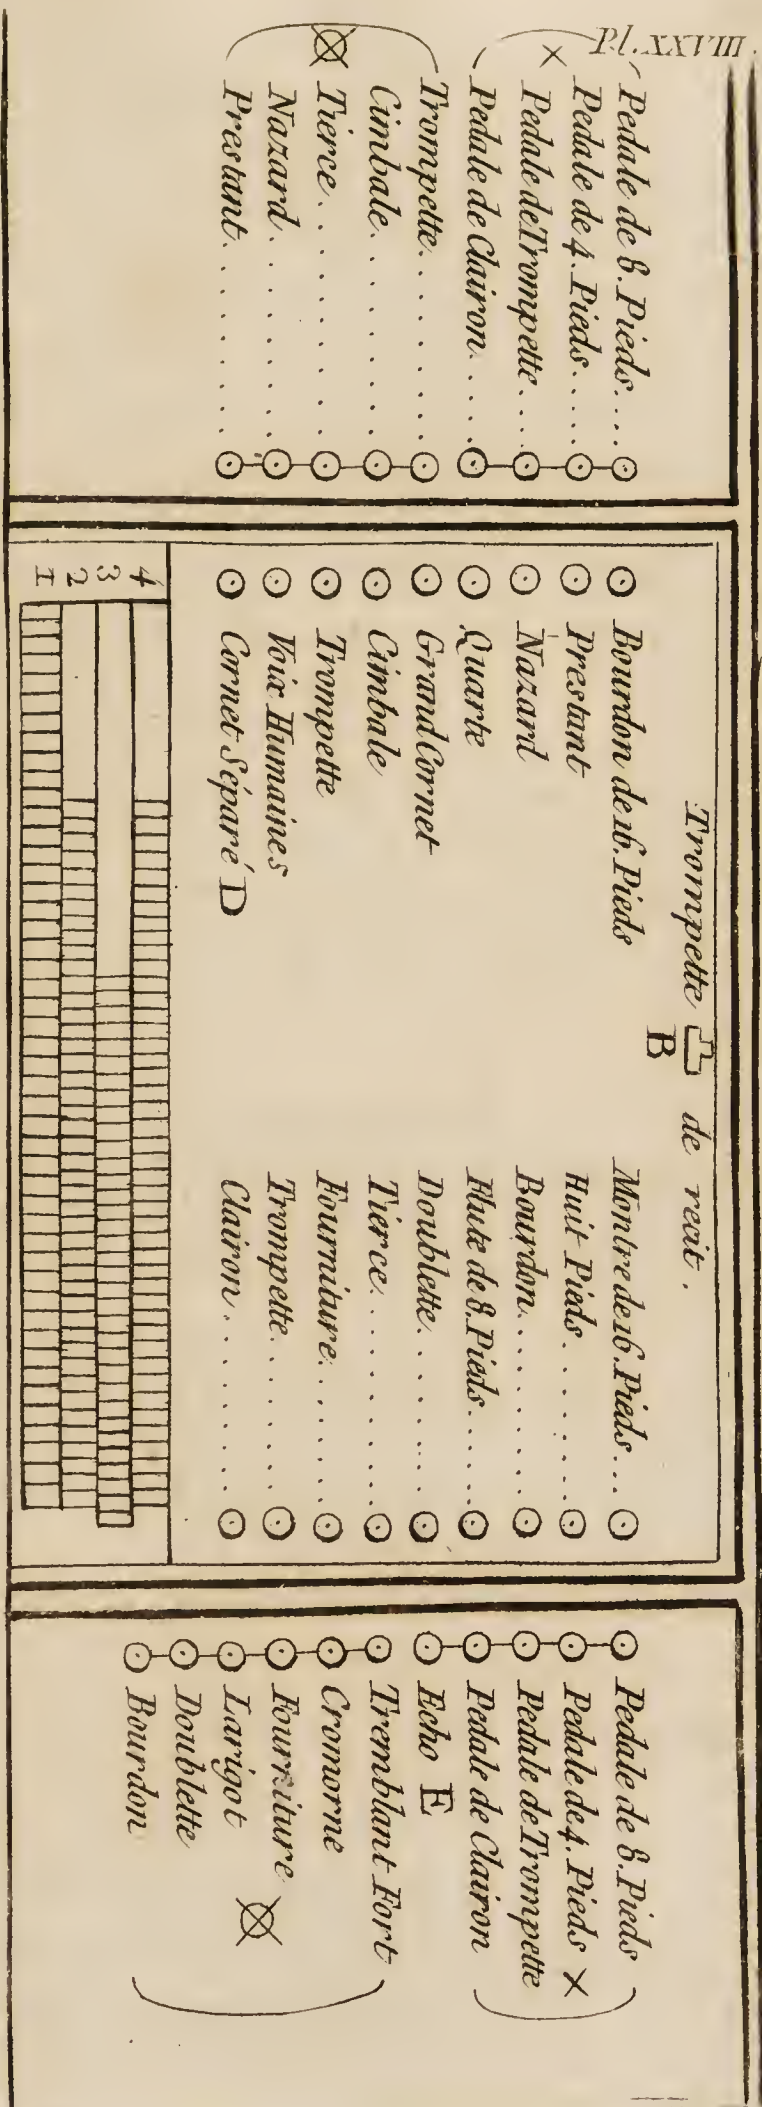 Pl. XXVIII.
Pedale de 8. Pieds....
Pedale de 4. Pieds.....
× Pedale de Trompette...
Pedale de Clairon.....
Trompette.........
Cimbale..........
Tierce..........
Nazard..........
Prestant.........
Trompette B de recit.
Bourdon de 16. Pieds
Prestant
Nazard
Quarte
Grand Cornet
Cimbale
Trompette
Voix Humaines
Cornet Séparé D
Montre de 16. Pieds...
Huit Pieds........
Bourdon.........
Flute de 8. Pieds.....
Doublette........
Tierce..........
Fourniture........
Trompette........
Clairon.........
4
3
2
1
Pedale de 8. Pieds
Pedale de 4. Pieds ×
Pedale de Trompette
Pedale de Clairon
Echo E
Tremblant Fort
Cromorne
Fourniture
Larigot
Doublette
Bourdon